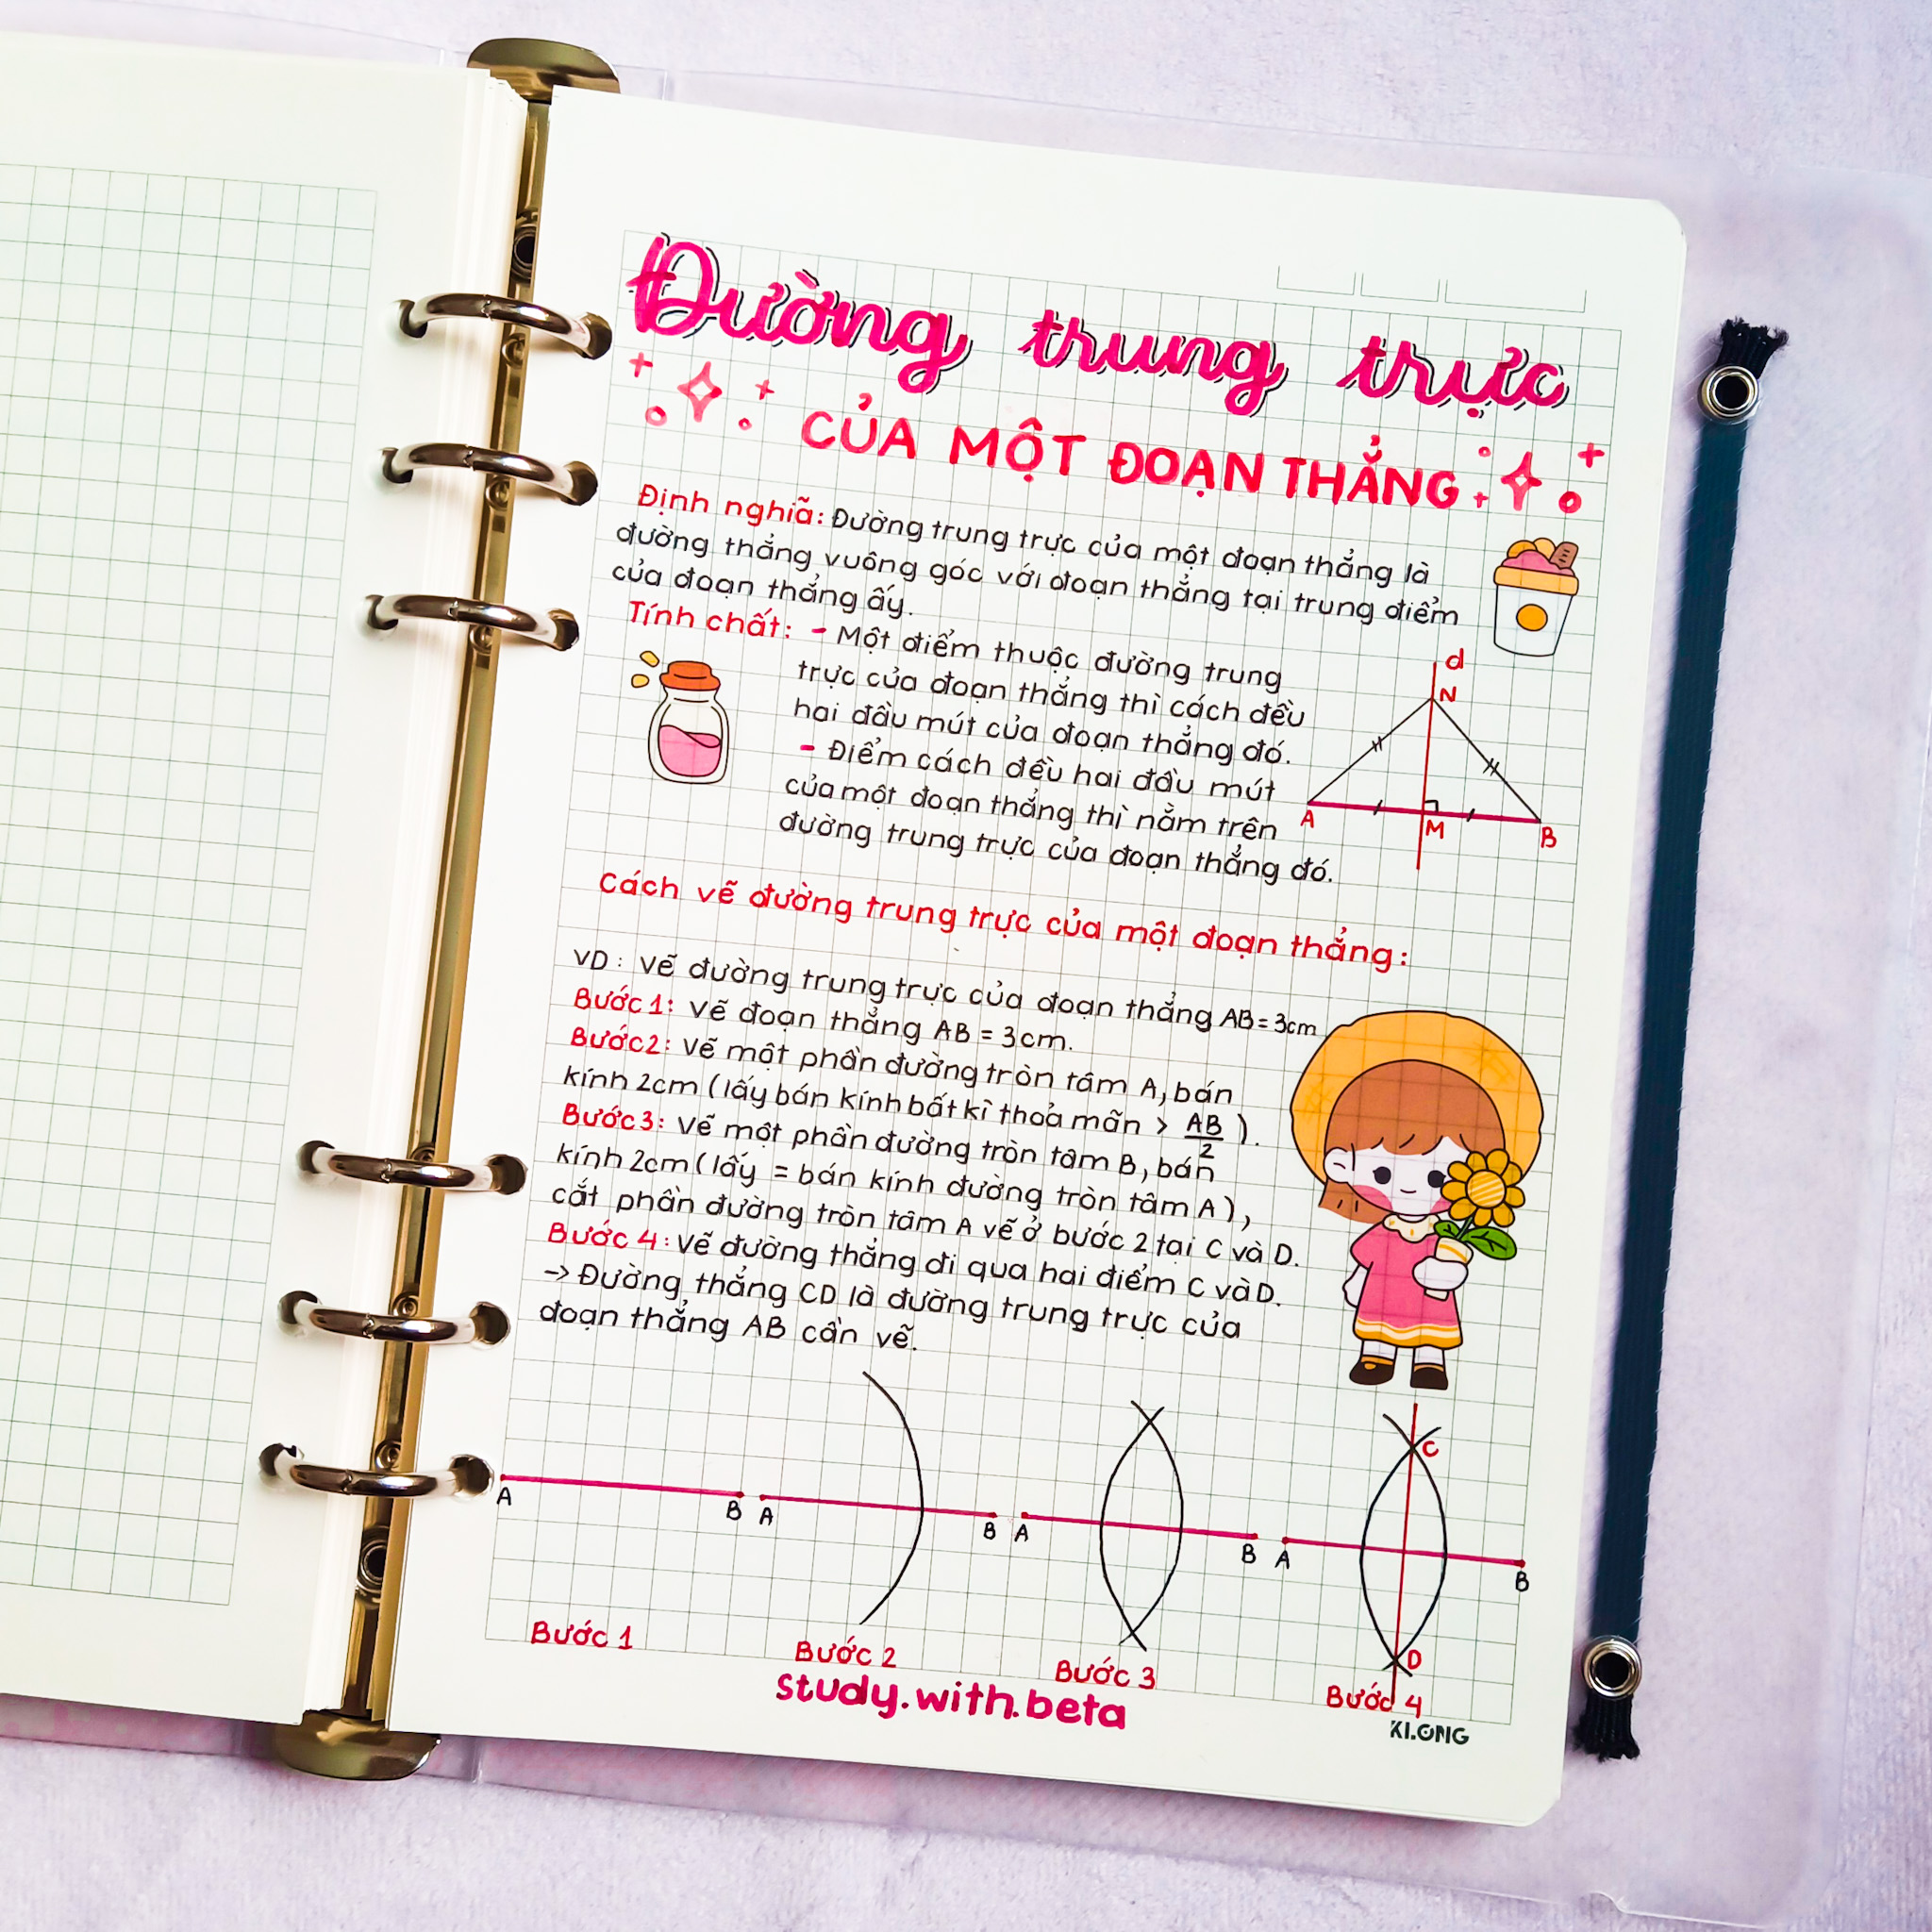 Đường trung trực
CỦA MỘT ĐOẠN THẲNG
Định nghĩa: Đường trung trực của một đoạn thẳng là
đường thẳng vuông góc với đoạn thẳng tại trung điểm
của đoạn thẳng ấy.
Tính chất: - Một điểm thuộc đường trung
trực của đoạn thẳng thì cách đều
hai đầu mút của đoạn thẳng đó.
- Điểm cách đều hai đầu mút
của một đoạn thẳng thì nằm trên
đường trung trực của đoạn thẳng đó.
d
N
A
M
B
Cách vẽ đường trung trực của một đoạn thẳng:
VD: Vẽ đường trung trực của đoạn thẳng AB = 3cm
Bước 1: Vẽ đoạn thẳng AB = 3cm.
Bước 2: Vẽ một phần đường tròn tâm A, bán
kính 2cm (lấy bán kính bất kì thoả mãn > AB/2).
Bước 3: Vẽ một phần đường tròn tâm B, bán
kính 2cm (lấy = bán kính đường tròn tâm A),
cắt phần đường tròn tâm A vẽ ở bước 2 tại C và D.
Bước 4: Vẽ đường thẳng đi qua hai điểm C và D.
-> Đường thẳng CD là đường trung trực của
đoạn thẳng AB cần vẽ.
A B
A B
A B
C
A B
D
Bước 1
Bước 2
Bước 3
Bước 4
study.with.beta
KLONG